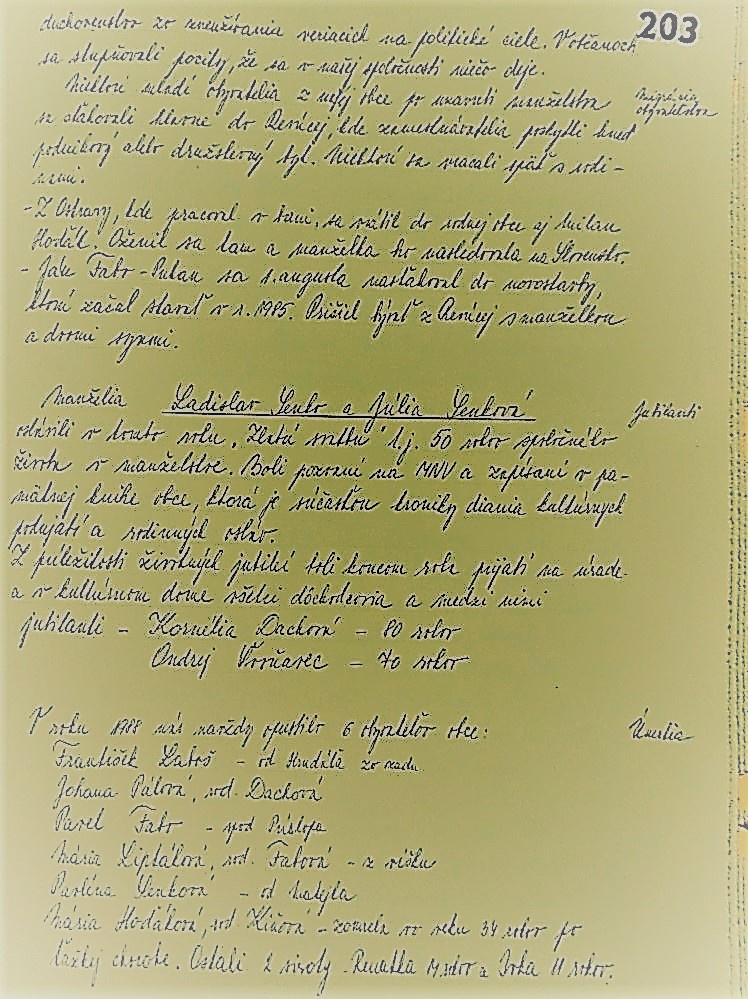 203
duchovenstvo zo zneužívania veriacich na politické ciele. V občanoch
sa stupňovali pocity, že sa v našej spoločnosti niečo deje.
Niektorí mladí obyvatelia z našej obce po uzavretí manželstva
sa sťahovali hlavne do Revúcej, kde zamestnávatelia poskytli hneď
podnikový alebo družstevný byt. Niektorí sa vracali späť s rodi-
nami.
Migrácia
obyvateľstva
- Z Ostravy, kde pracoval v bani, sa vrátil do rodnej obce aj Milan
Hodák. Oženil sa tam a manželka ho nasledovala na Slovensko.
- Ján Fabo - Putan sa 1. augusta nasťahoval do novostavby,
ktorú začal stavať v r. 1985. Prišiel bývať z Revúcej s manželkou
a dvomi synmi.
Manželia Ladislav Senko a Júlia Senková
Jubilanti
oslávili v tomto roku "Zlatú svadbu" t.j. 50 rokov spoločného
života v manželstve. Boli pozvaní na MNV a zapísaní v pa-
mätnej knihe obce, ktorá je súčasťou kroniky diania kultúrnych
podujatí a rodinných osláv.
Z príležitosti životných jubileí boli koncom roka prijatí na úrade
a v kultúrnom dome všetci dôchodcovia a medzi nimi
jubilanti - Kornélia Dachová - 80 rokov
Ondrej Vorňavec - 70 rokov
V roku 1988 nás navždy opustilo 6 obyvateľov obce:
Úmrtia
František Laboš - od Hrudáľa zo zadu
Johana Pálová, rod. Dachová
Pavel Fabo - spod Príslopa
Mária Liptáková, rod. Fabová - z vŕšku
Pavlína Senková - od Matejka
Mária Hodáková, rod. Kišová - zomrela vo veku 34 rokov po
ťažkej chorobe. Ostali 2 siroty - Renátka 14 rokov a Ivka 11 rokov.